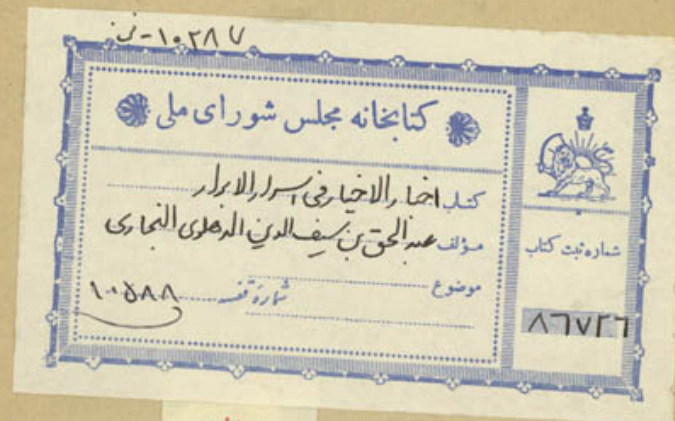 ۱۰۲۸۷-ن
کتابخانه مجلس شورای ملی
کتاب اخبار الاخیار فی اسرار الابرار
مؤلف عبدالحق بن سیف الدین الدهلوی البخاری
موضوع
شمارهٔ قفسه ۱۰۵۸۸
شماره ثبت کتاب
۸۶۷۲۶